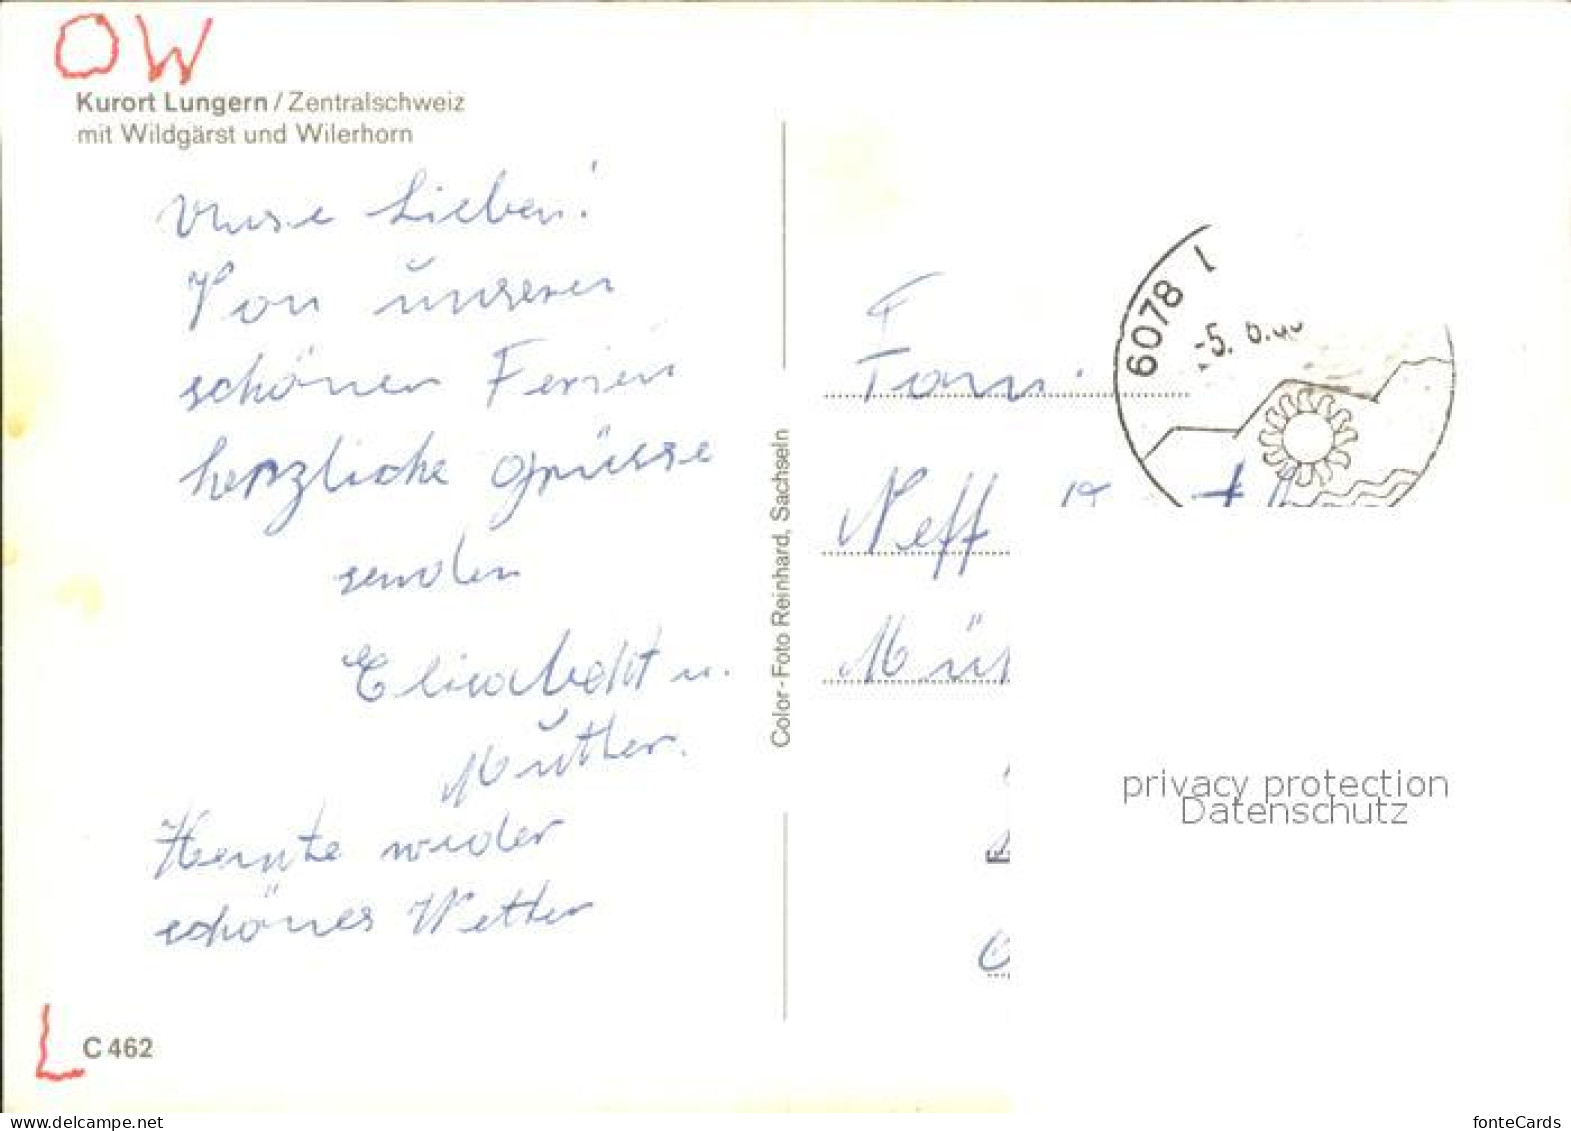 OW
Kurort Lungern / Zentralschweiz
mit Wildgärst und Wilerhorn
Unse Lieben!
Von unseren
schönen Ferien
herzliche Grüsse
senden
Elisabeht u.
Mutter.
Heute wieder
schönes Wetter
L
C 462
Color-Foto Reinhard, Sachseln
6078
-5. 6.
Fam.
Neff
privacy protection
Datenschutz
www.delcampe.net
fonteCards